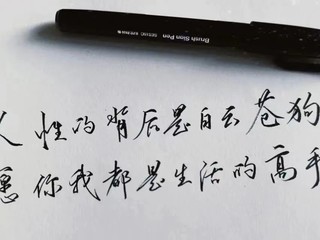 Brush Sign Pen
人性的背后是白云苍狗
愿你我都是生活的高手